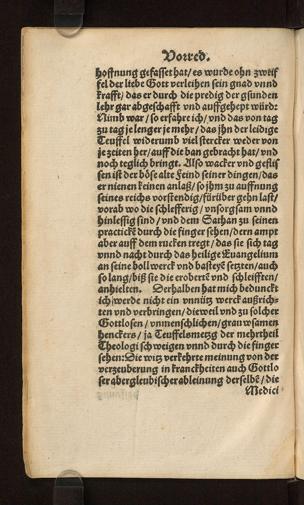 Vorred.
hoffnung gefasset hat/ es wurde ohn zweif
fel der liebe Gott verleihen sein gnad vnnd
krafft/ das er durch die predig der gsunden
lehr gar abgeschafft vnd auffgehept würd:
Nimb war/ so erfahre ich/ vnd das von tag
zu tag je lenger je mehr/ das jhn der leidige
Teuffel widerumb viel stercker weder von
je zeiten her/ auff die ban gebracht hat/ vnd
noch teglich bringt. Also wacker vnd geflis
sen ist der böse alte Feind seiner dingen/ das
er nienen keinen anlaß/ so jhm zu auffnung
seines reichs vorstendig/ fürüber gehn last/
vorab wo die schlefferig/ vnsorgsam vnnd
hinlessig sind/ vnd dem Sathan zu seinen
practickē durch die finger sehen/ dern ampt
aber auff dem rucken tregt/ das sie sich tag
vnnd nacht durch das heilige Euangelium
an seine bollwerck vnd basteyē setzten/ auch
so lang/ biß sie die erobertē vnd schleifften/
anhielten. Derhalben hat mich beduncket
ich werde nicht ein vnnütz werck außrich-
ten vnd verbringen/ dieweil vnd zu solcher
Gottlosen/ vnmenschlichen/ grauwsamen
henckers/ ja Teuffelsmetzg der mehrtheil
Theologi schweigen vnnd durch die finger
sehen: Die witz verkehrte meinung von der
verzeuberung in kranckheiten auch Gottlo
ser abergleubischer ableinung derselbē/ die
Medici